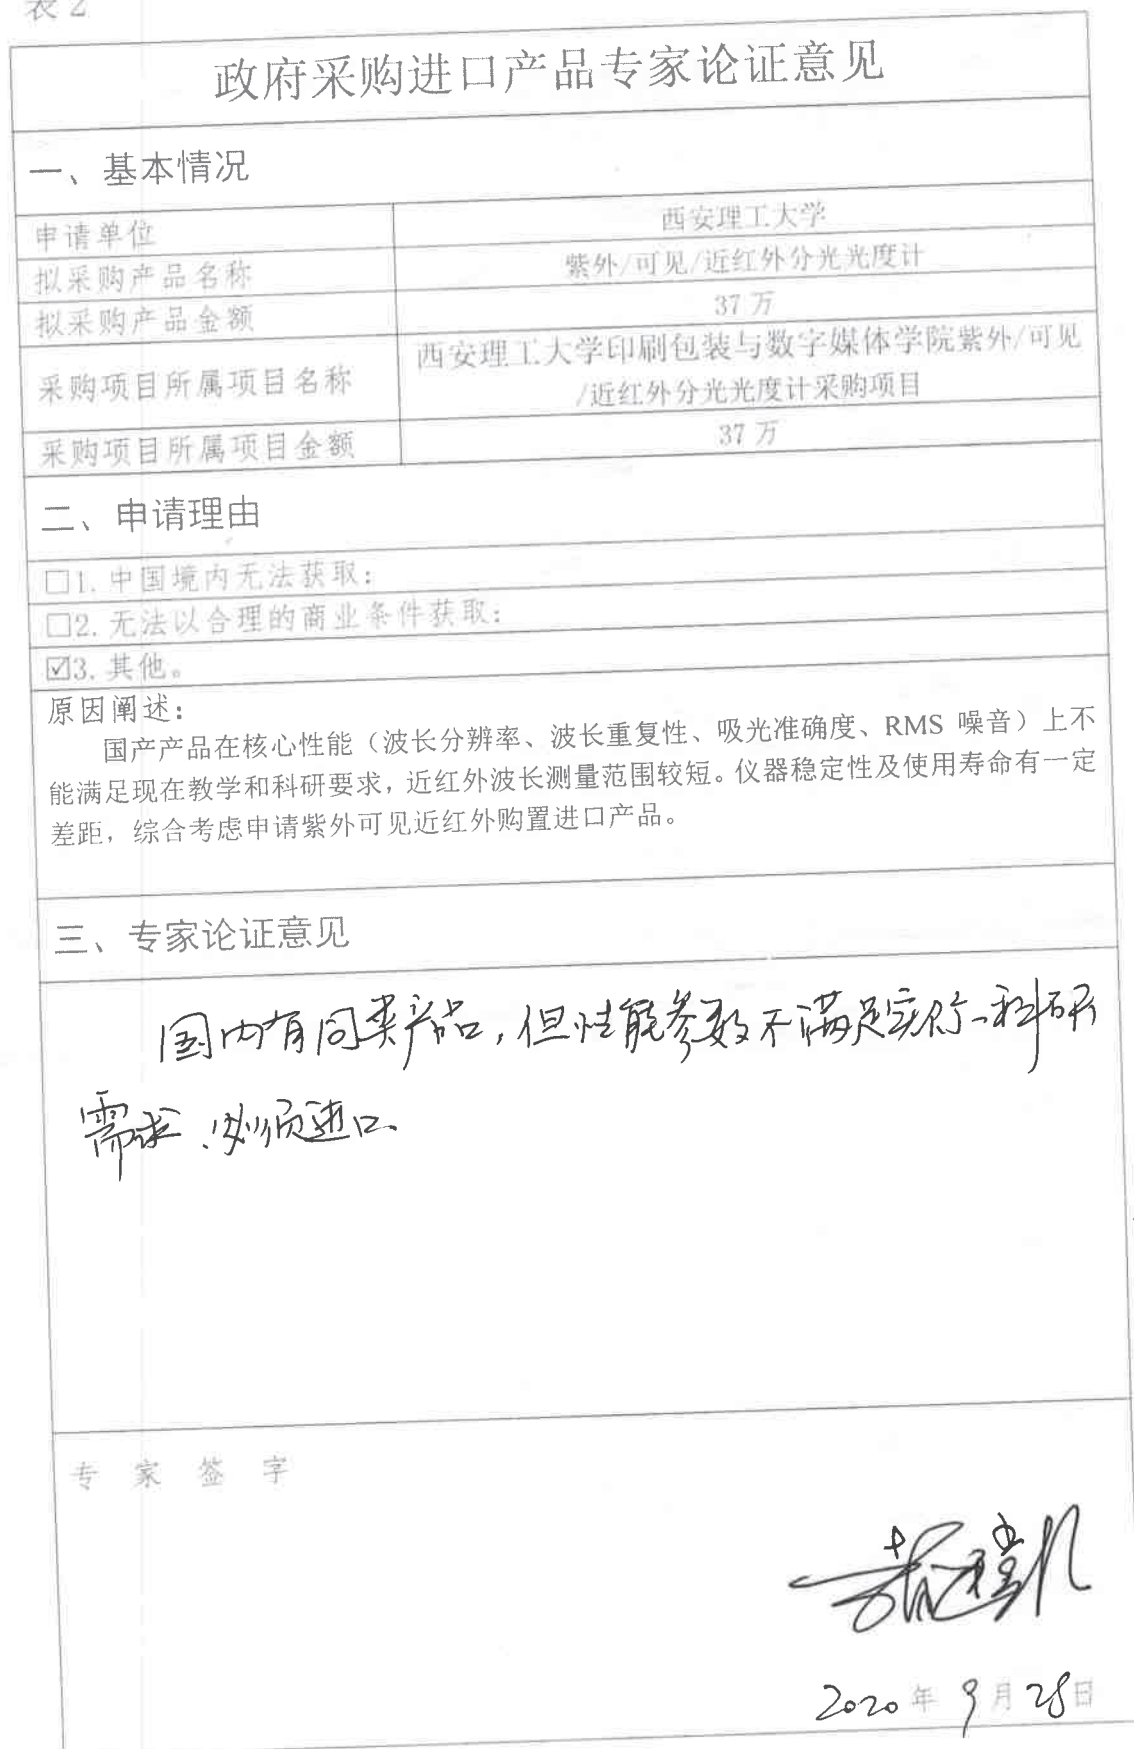 表2
政府采购进口产品专家论证意见
一、基本情况
申请单位 西安理工大学
拟采购产品名称 紫外/可见/近红外分光光度计
拟采购产品金额 37万
采购项目所属项目名称 西安理工大学印刷包装与数字媒体学院紫外/可见
/近红外分光光度计采购项目
采购项目所属项目金额 37万
二、申请理由
□1. 中国境内无法获取：
□2. 无法以合理的商业条件获取：
☑3. 其他。
原因阐述：
国产产品在核心性能（波长分辨率、波长重复性、吸光准确度、RMS 噪音）上不
能满足现在教学和科研要求，近红外波长测量范围较短。仪器稳定性及使用寿命有一定
差距，综合考虑申请紫外可见近红外购置进口产品。
三、专家论证意见
国内有同类产品，但性能参数不满足实际科研
需求，必须进口
专 家 签 字
2020年 9月 28日